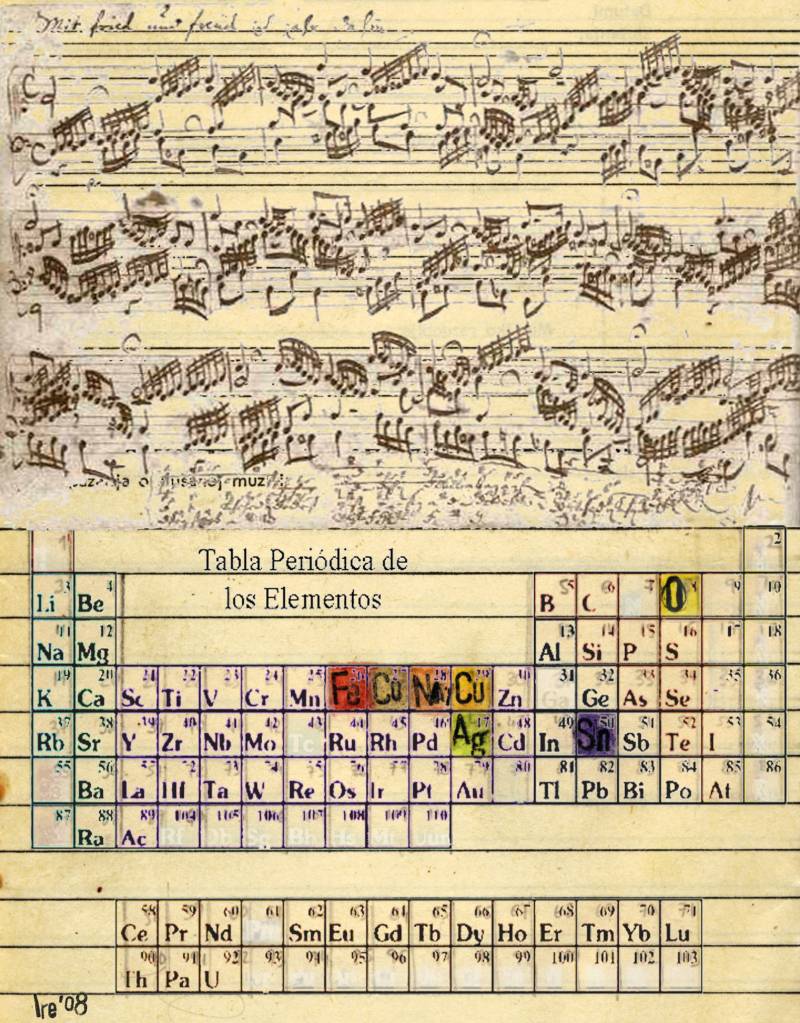 Mit fried und freud ich fahr dahin
muzi
Tabla Periódica de
los Elementos
1 2
3 4 5 6 7 8 9 10
Li Be B C O
11 12 13 14 15 16 17 18
Na Mg Al Si P S
19 20 21 22 23 24 25 26 27 28 29 30 31 32 33 34 35 36
K Ca Sc Ti V Cr Mn Fe Co Ni Cu Zn Ga Ge As Se
37 38 39 40 41 42 43 44 45 46 47 48 49 50 51 52 53 54
Rb Sr Y Zr Nb Mo Tc Ru Rh Pd Ag Cd In Sn Sb Te I
55 56 57 72 73 74 75 76 77 78 79 80 81 82 83 84 85 86
Ba La Hf Ta W Re Os Ir Pt Au Tl Pb Bi Po At
87 88 89 104 105 106 107 108 109 110
Ra Ac Rf Db Sg Bh Hs Mt Uun
58 59 60 61 62 63 64 65 66 67 68 69 70 71
Ce Pr Nd Pm Sm Eu Gd Tb Dy Ho Er Tm Yb Lu
90 91 92 93 94 95 96 97 98 99 100 101 102 103
Th Pa U
Ire'08